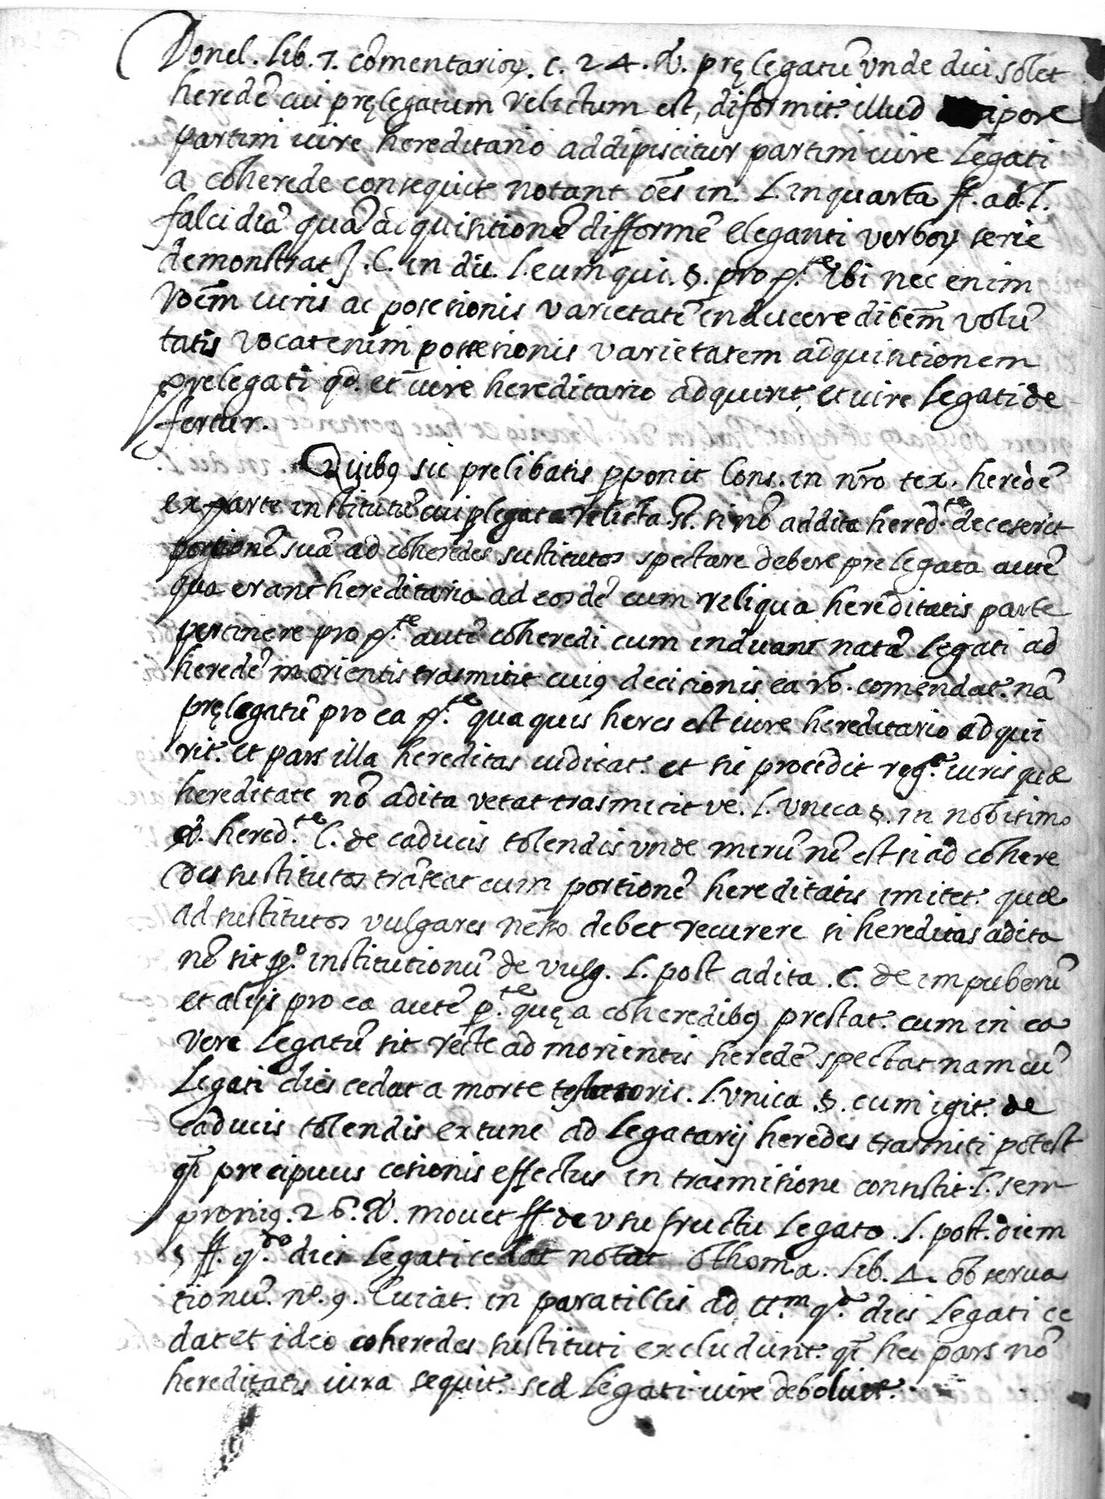 Donel. lib. 7. cõmentarioȝ. c. 24. V. pręlegatũ unde dici solet
heredẽ cui pręlegatum relictum est, diformit. illud ipore
partim iure hereditario addipiscitur partim iure legati
a coherede consequit notant oẽs in. l. in quarta ff. ad l.
falcidiã quã acquisitionẽ difformẽ eleganti verboȝ serie
demonstrat J. C. in dic. l. eum qui. §. pro p.te ibi nec enim
iuris ac posesionis varietatẽ inducere dibem̃ volũ
tatis vocat enim possesionis varietatem adquisitionem
prelegati qd. et iure hereditario adquirit. et iure legati de
fertur.
Quibꝰ sic prelibatis pponit Cons. in nr̃o tex. heredẽ
ex parte institutũ cui plegata relicta st. si nõ addita hered.te deceserit
portionẽ suã ad coheredes sustitutos spectare debere prelegata autẽ
qua erant hereditaria ad eosdẽ cum reliqua hereditatis parte
pertinere pro p.te autẽ coheredi cum induant natã legati ad
heredẽ morientis trasmitit cuiꝰ decisionis ea rõ. comendat. nã
pręlegatũ pro ea p.te qua quis heres est iure hereditario adqui
rit. et pars illa hereditas iudicat. et sic procedit reg.a iuris quæ
hereditatẽ nõ adita vetat trasmitit ve. l. unica §. in nobisimo
V. hered.te C. de caducis tolendis unde mirũ nõ est si ad cohere
des sustitutos trãseat cum portionẽ hereditatis imitet. quæ
ad sustitutos vulgares debet recurere si hereditas adita
nõ sit p.o institutionũ de vulg. l. post adita. C. de impuberũ
et alijs pro ea autẽ p.te quę a coheredibꝰ prestat. cum in ea
vere legatũ sit recte ad morientis heredẽ spectat nam cũ
legati dies cedat a morte testatoris. l. unica §. cum igit. de
caducis tolendis ex tunc ad legatarij heredes trasmiti potest
qĩ precipuus cesionis effectus in trasmisione consistit. l. sem
proniꝰ. 26. V. movet ff. de usu fructu legato. l. post. diem
5 ff. q.do dies legati cedat notat othoma. lib. 4. observa
tionũ. nº. 9. Cuiat. in paratillis ad tt.m q.do dies legati ce
dat et ideo coheredes sustituti excludunt. qĩ hec pars nõ
hereditatis iura sequit. sed legati iure deboluit.